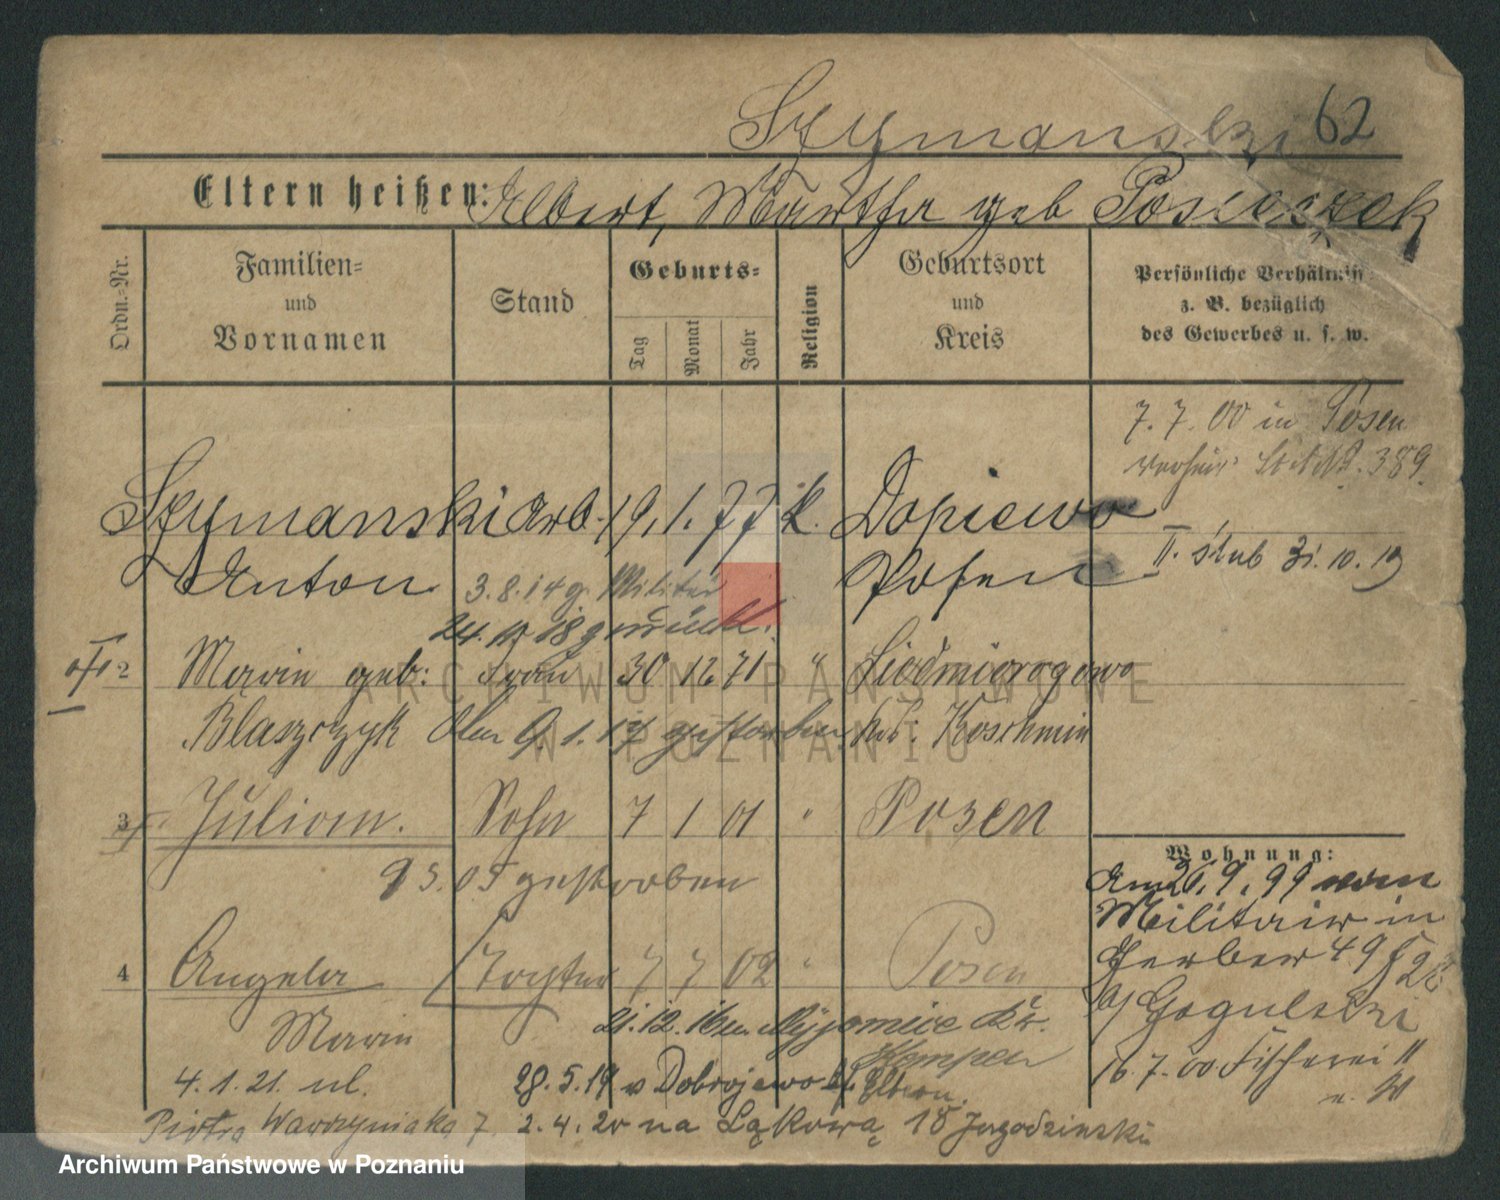 Szymanski 62
Eltern heißen: Albert, Martha geb Posieczek
Ordn.-Nr.
Familien-
und
Vornamen
Stand
Geburts-
Tag
Monat
Jahr
Religion
Geburtsort
und
Kreis
Persönliche Verhältniss
z. B. bezüglich
des Gewerbes u. s. w.
7. 7. 00 in Posen
389.
Szymanski Arb. 19. 1. 77 k. Dopiewo
Anton Posen
II. ślub 31. 10. 19
3. 8. 14 z. Militär
24. 11. 18 zurück.
2 Marie geb: Frau 30 12 71 " Siedmiorogowo
Blaszczyk Am 9. 1. 17 gestorben Kr. Koschmin
3 Julian. Sohn 7 1 01 " Posen
9 5. 05 gestorben
Wohnung:
Am 26. 9. 99 vom
Militair in
Gerber 49
b/ Gogulski
16. 7. 00 Fischerei 11
4 Angela Tochter 7 7 02 " Posen
Marie
21. 12. 16 Kr.
Kempen
4. 1. 21. ul. 28. 5. 19 v Dobrojewo Eltern.
Piotra Wawrzyniaka 7. 2. 4. 20 na Łąkową 18 Jagodzinski
ARCHIWUM PAŃSTWOWE
W POZNANIU
Archiwum Państwowe w Poznaniu